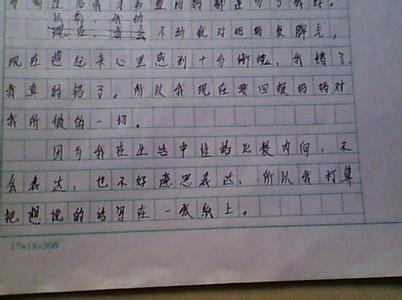 不动就对妈妈发脾气,
现在想起来心里感到十分惭愧,我错了
我真的错了。所以我现在要回报妈妈对
我所做的一切。
因为我在生活中性格比较内向,不
会表达,也不好意思表达,所以我打算
把想说的话写在一张纸上。
17×18=306